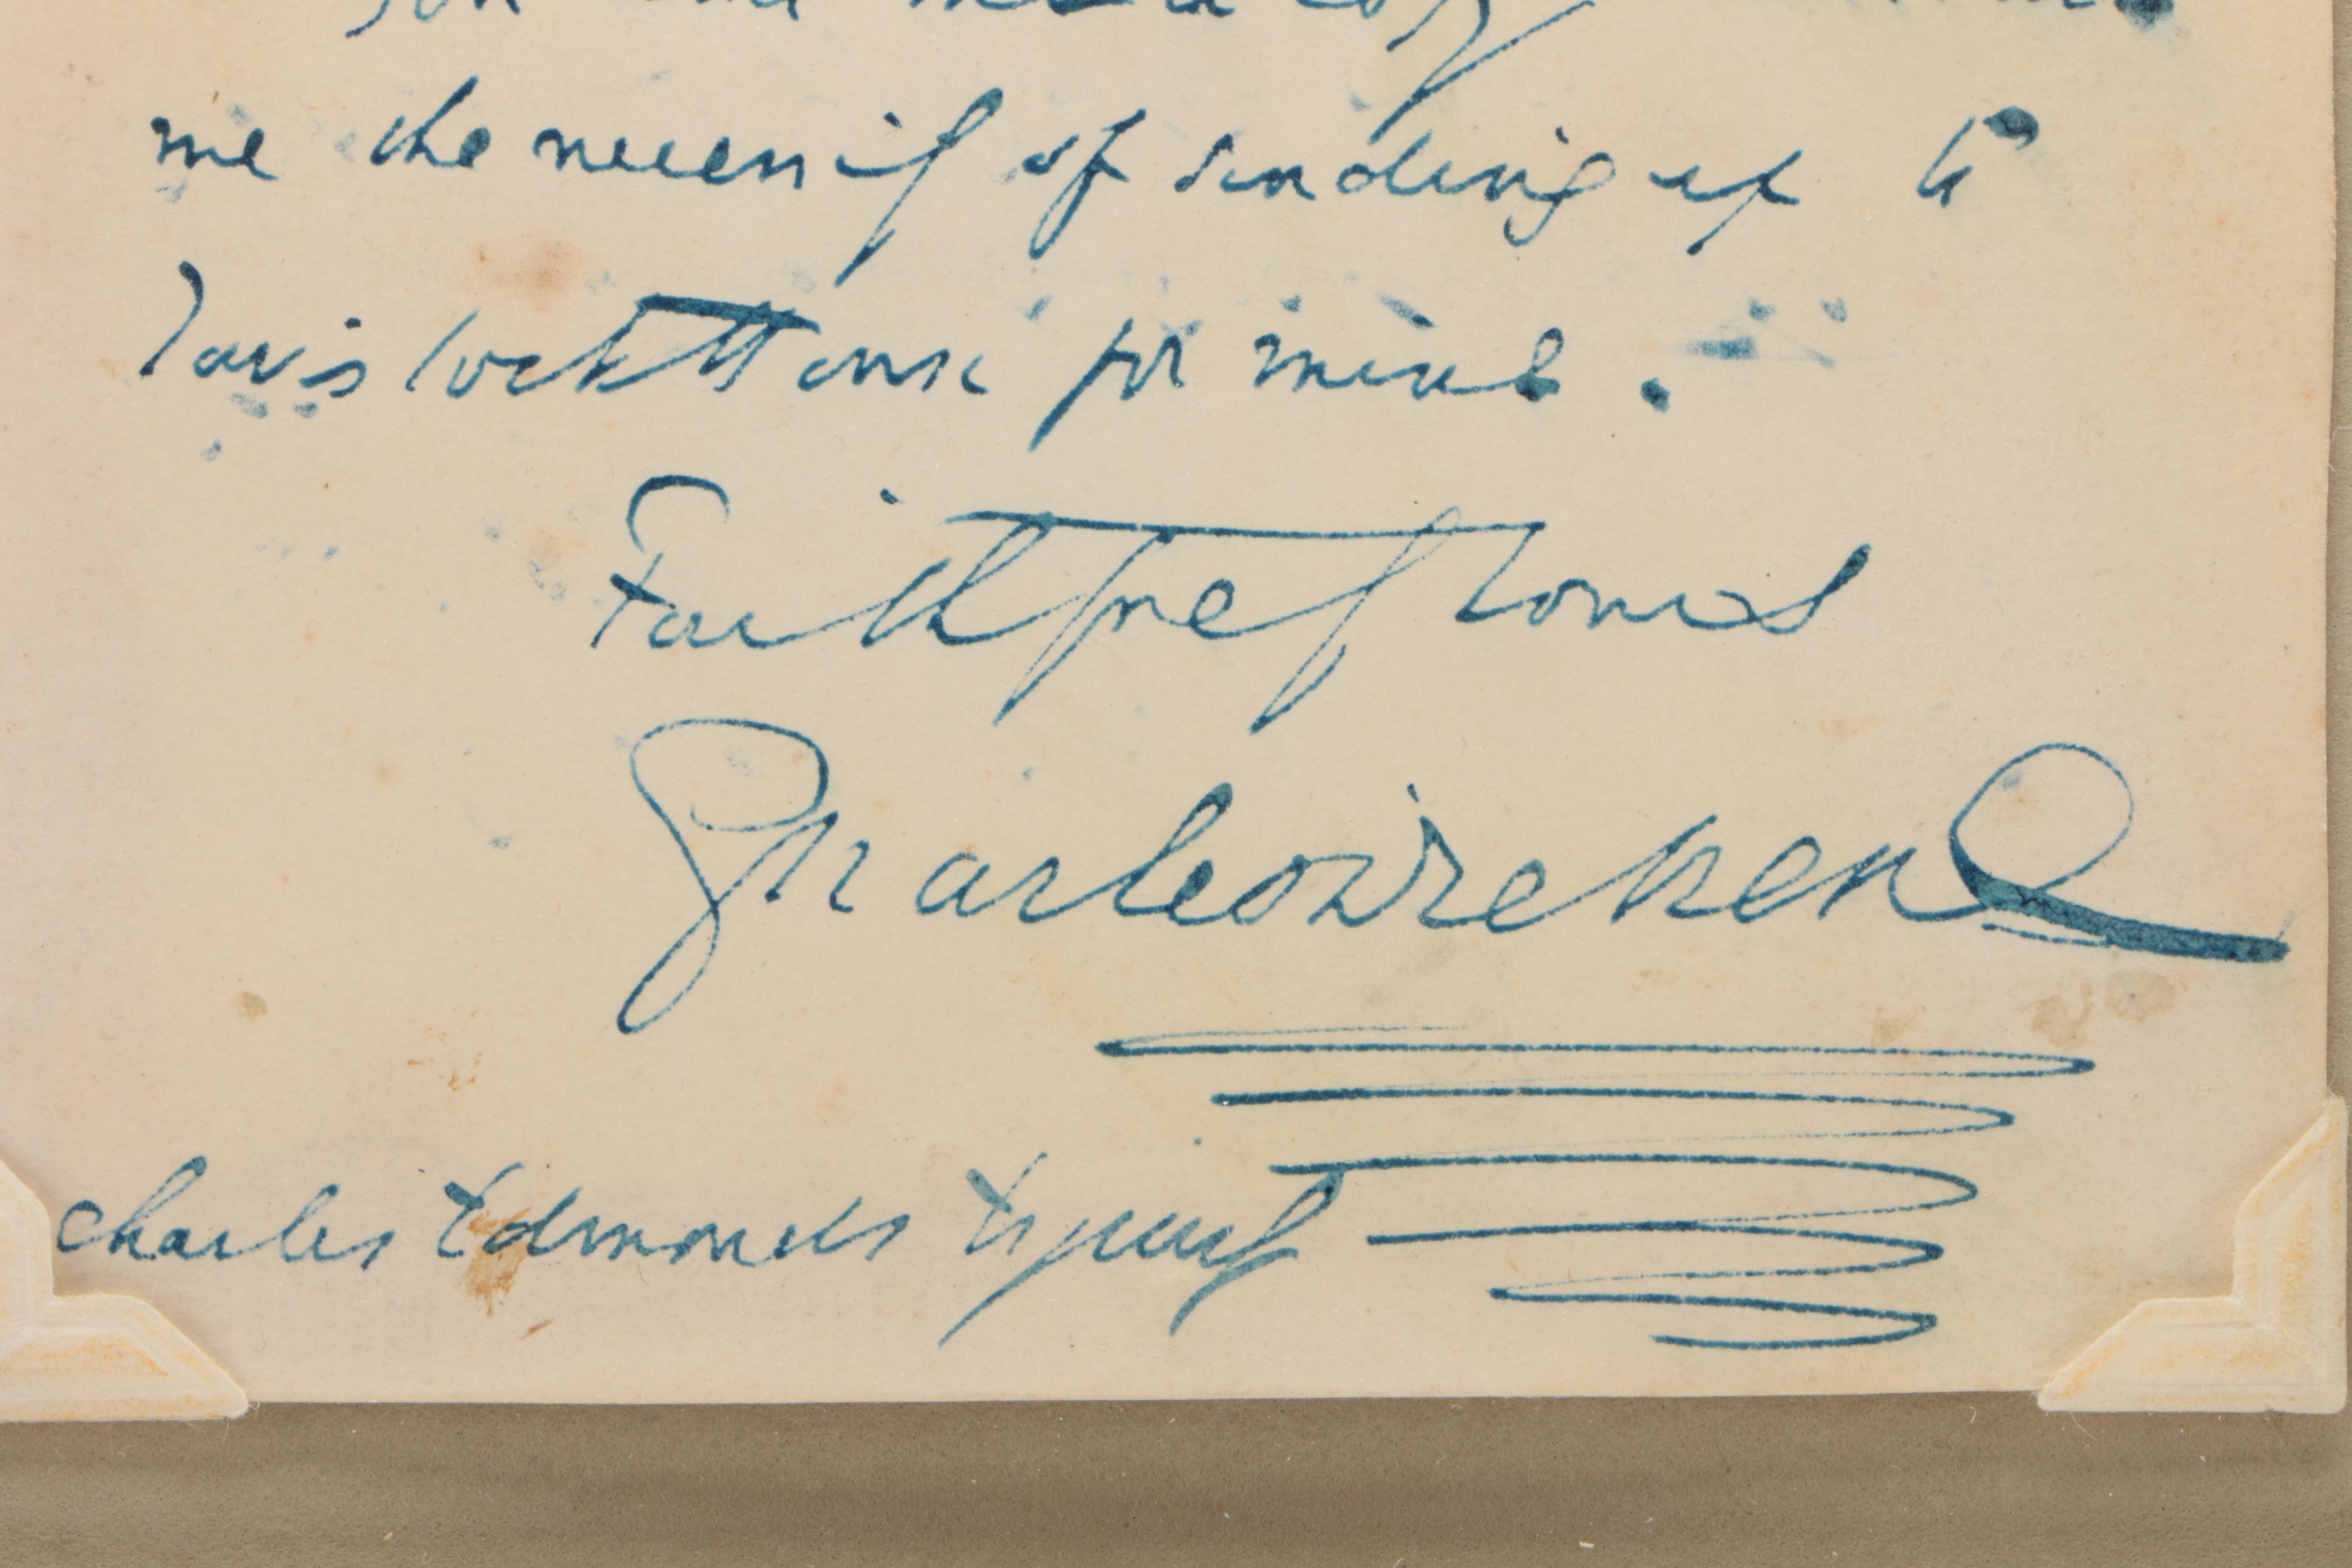 me the necessity of sending up to
Tavistock House for mine.
Faithfully Yours
Charles Dickens
Charles Edmonds Esquire